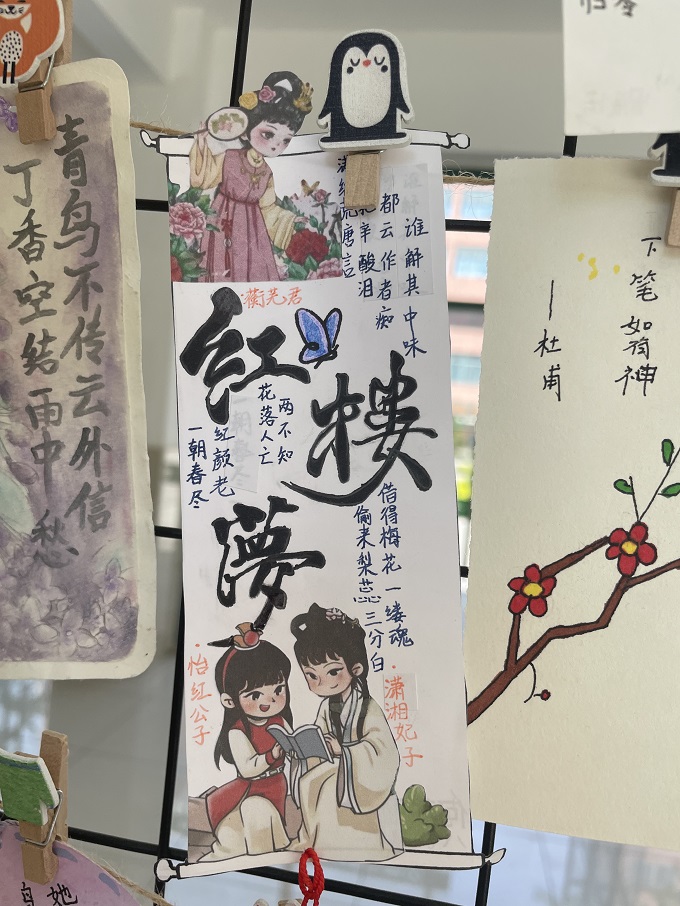 青鸟不传云外信
丁香空结雨中愁
满纸荒唐言
辛酸泪
都云作者痴
谁解其中味
蘅芜君
红楼梦
一朝春尽
红颜老
花落人亡
两不知
借得梅花一缕魂
偷来梨蕊三分白
·怡红公子
·潇湘妃子
下笔如有神
—杜甫
她